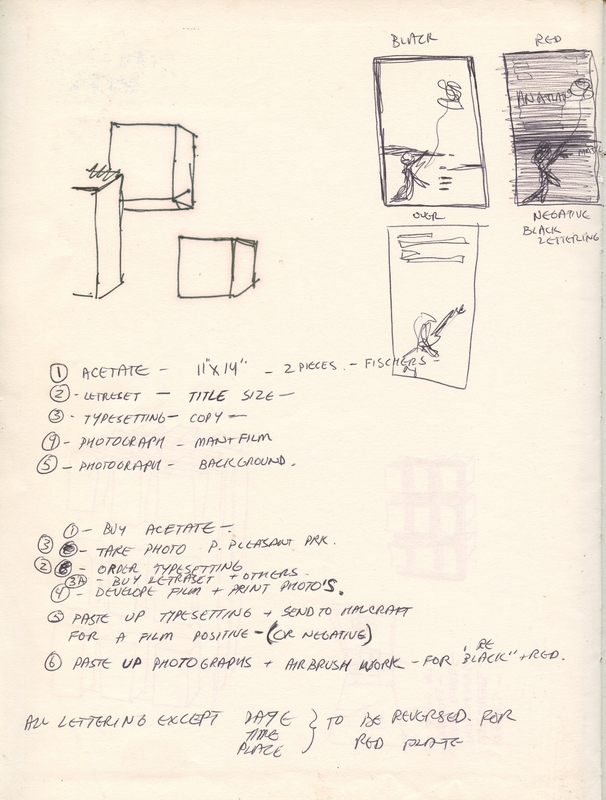 BLACK
RED
AN ATLAN
OVER
NEGATIVE
BLACK
LETTERING
① ACETATE - 11"X14" - 2 PIECES. - FISCHERS -
② - LETRESET - TITLE SIZE -
③ - TYPESETTING - COPY -
④ - PHOTOGRAPH - MAN + FILM
⑤ - PHOTOGRAPH - BACKGROUND.
① - BUY ACETATE -
③ - TAKE PHOTO P. PLEASANT PRK.
② - ORDER TYPESETTING
③A - BUY LETRASET + OTHERS.
④ - DEVELOPE FILM + PRINT PHOTO'S.
⑤ PASTE UP TYPESETTING + SEND TO
FOR A FILM POSITIVE - (OR NEGATIVE)
⑥ PASTE UP PHOTOGRAPHS + AIRBRUSH WORK - FOR "BLACK" + RED.
ALL LETTERING EXCEPT DATE } TO BE REVERSED. FOR
TIME
PLACE RED PLATE